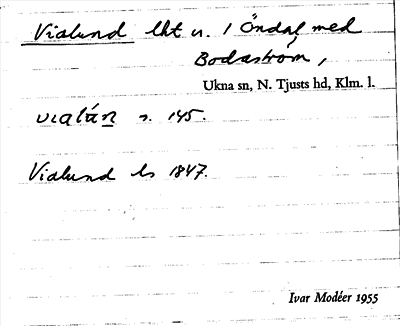 Vialund lht u. 1 Öndal med
Bodaström,
Ukna sn, N. Tjusts hd, Klm. l.
vıalún s. 145.
Vialund ls 1847.
Ivar Modéer 1955